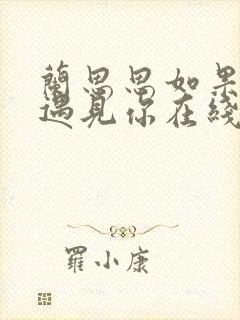 蘭思思如果
遇見你在綫
羅小康